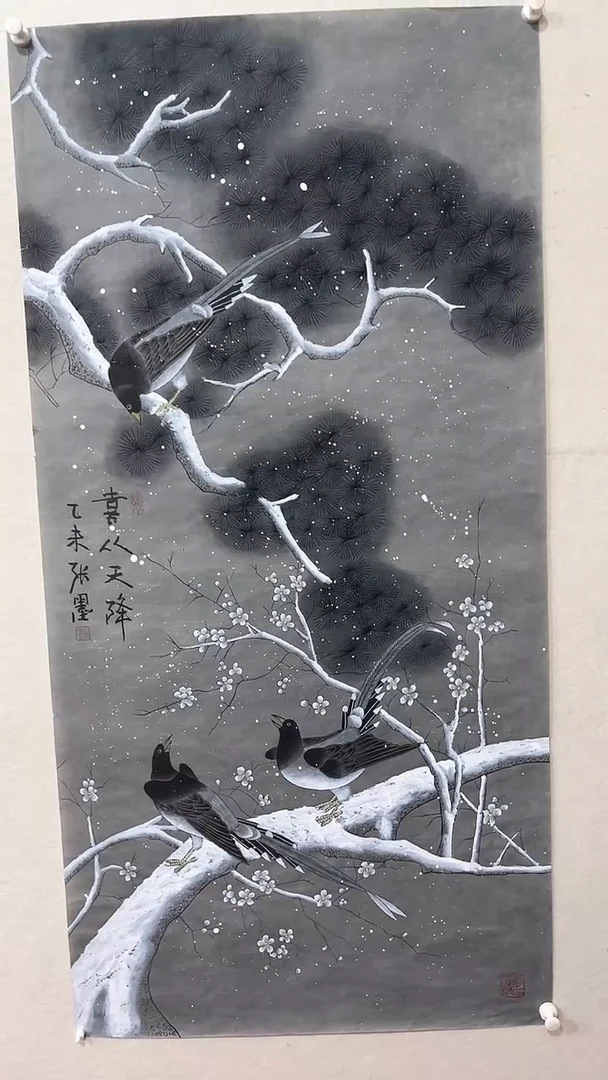 喜从天降
乙未张墨